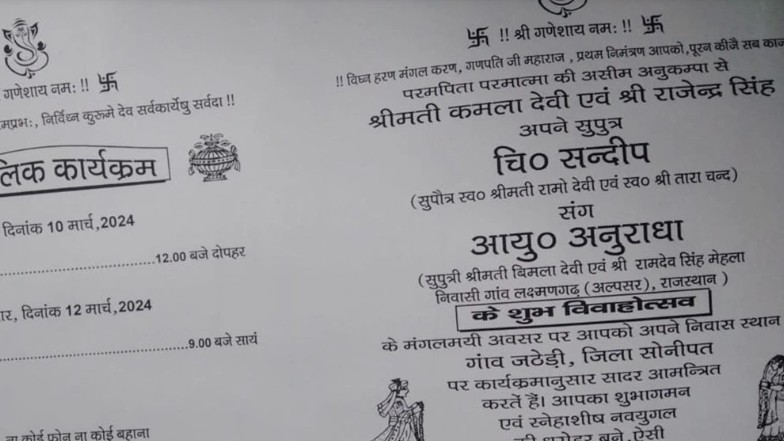 गणेशाय नम: !!
मप्रभ:, निर्विघ्न कुरूमे देव सर्वकार्येषु सर्वदा !!
लिक कार्यक्रम
दिनांक 10 मार्च,2024
..........12.00 बजे दोपहर
ार, दिनांक 12 मार्च,2024
..........9.00 बजे सायं
ना कोई फोन ना कोई बहाना
!! श्री गणेशाय नम: !!
!! विघ्न हरण मंगल करण, गणपति जी महाराज , प्रथम निमंत्रण आपको,पूरन कीजै सब काज
परमपिता परमात्मा की असीम अनुकम्पा से
श्रीमती कमला देवी एवं श्री राजेन्द्र सिंह
अपने सुपुत्र
चि० सन्दीप
(सुपौत्र स्व० श्रीमती रामो देवी एवं स्व० श्री तारा चन्द)
संग
आयु० अनुराधा
(सुपुत्री श्रीमती बिमला देवी एवं श्री रामदेव सिंह मेहला
निवासी गांव लक्ष्मणगढ़ (अल्पसर), राजस्थान )
के शुभ विवाहोत्सव
के मंगलमयी अवसर पर आपको अपने निवास स्थान
गांव जठेड़ी, जिला सोनीपत
पर कार्यक्रमानुसार सादर आमन्त्रित
करतें हैं। आपका शुभागमन
एवं स्नेहाशीष नवयुगल
की धरोहर बने, ऐसी